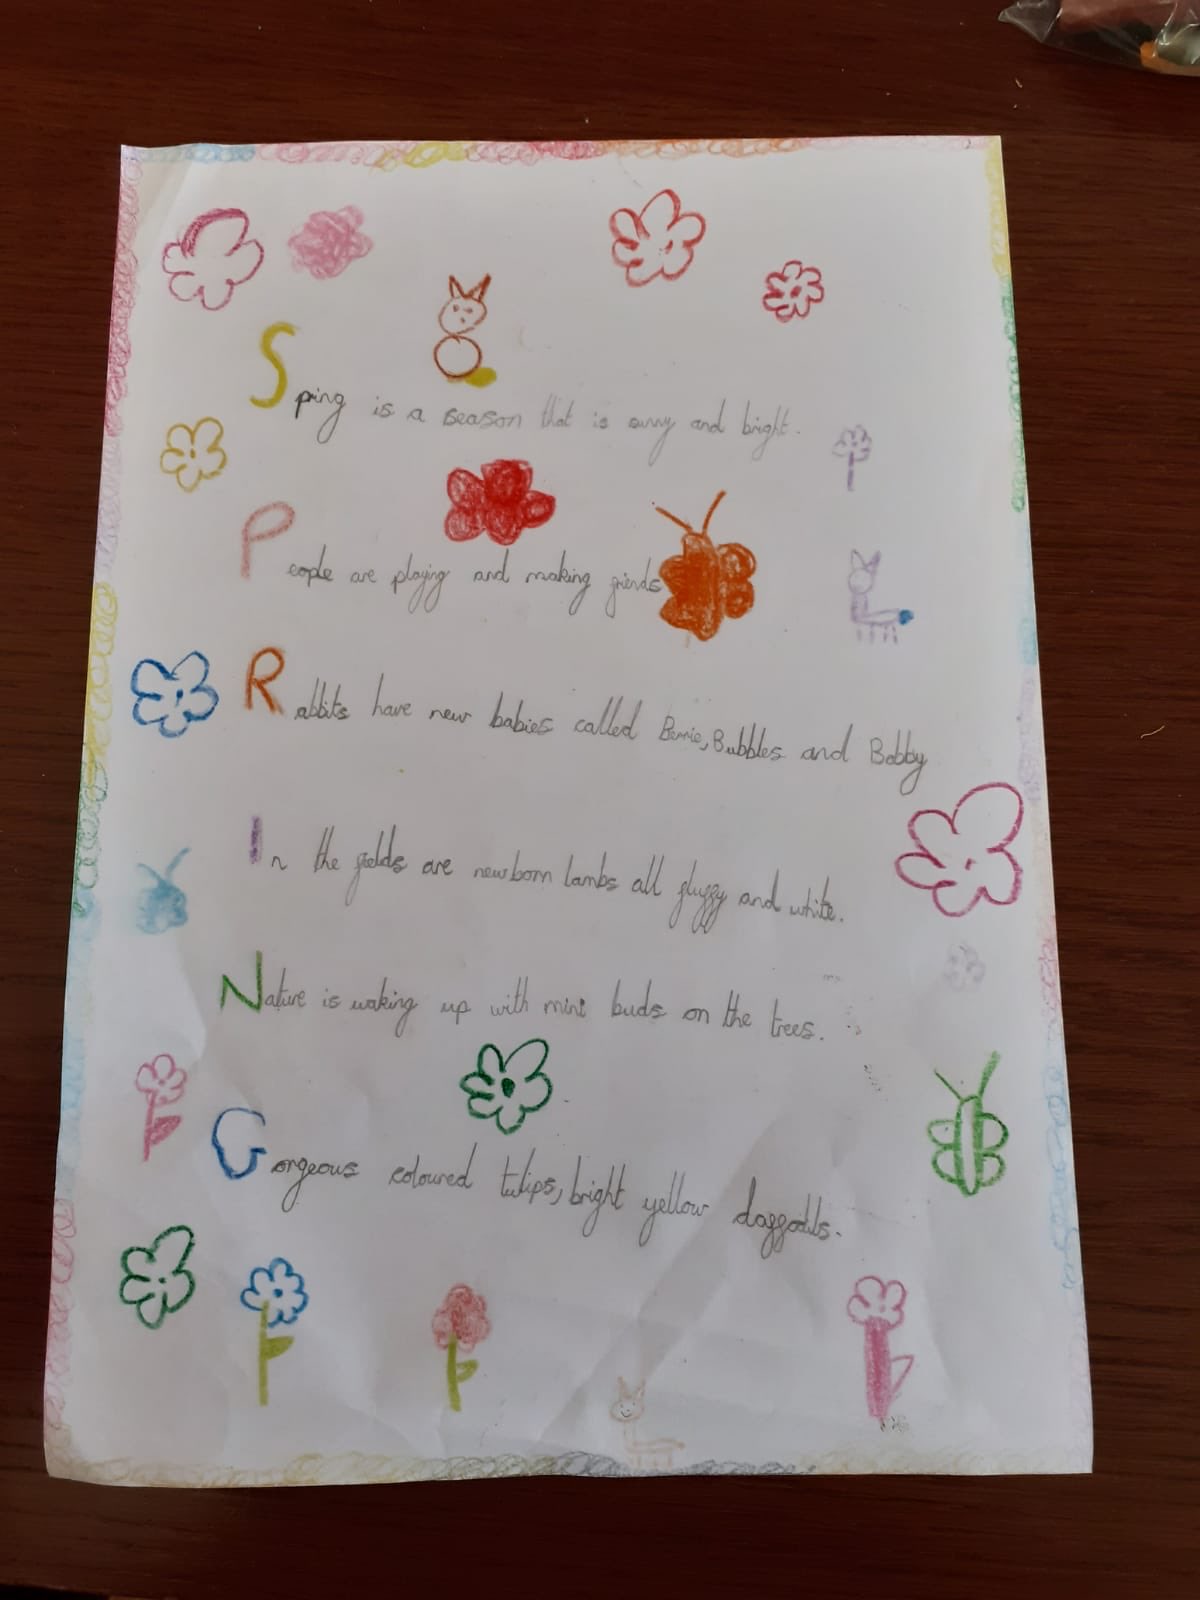 Spring is a season that is sunny and bright.
People are playing and making friends
Rabbits have new babies called Bernie, Bubbles and Bobby
In the fields are newborn lambs all fluffy and white.
Nature is waking up with mini buds on the trees.
Gorgeous coloured tulips, bright yellow daffodils.